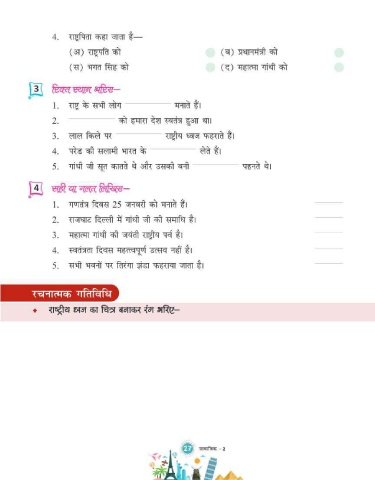 4. राष्ट्रपिता कहा जाता है—
(अ) राष्ट्रपति को (ब) प्रधानमंत्री को
(स) भगत सिंह को (द) महात्मा गांधी को
3 रिक्त स्थान भरिए—
1. राष्ट्र के सभी लोग ____________ मनाते हैं।
2. ____________ को हमारा देश स्वतंत्र हुआ था।
3. लाल किले पर ____________ राष्ट्रीय ध्वज फहराते हैं।
4. परेड की सलामी भारत के ____________ लेते हैं।
5. गांधी जी सूत कातते थे और उसकी बनी ____________ पहनते थे।
4 सही या गलत लिखिए—
1. गणतंत्र दिवस 25 जनवरी को मनाते हैं। ______
2. राजघाट दिल्ली में गांधी जी की समाधि है। ______
3. महात्मा गांधी की जयंती राष्ट्रीय पर्व है। ______
4. स्वतंत्रता दिवस महत्त्वपूर्ण उत्सव नहीं है। ______
5. सभी भवनों पर तिरंगा झंडा फहराया जाता है। ______
रचनात्मक गतिविधि
♦ राष्ट्रीय ध्वज का चित्र बनाकर रंग भरिए—
27 सामाजिक - 2